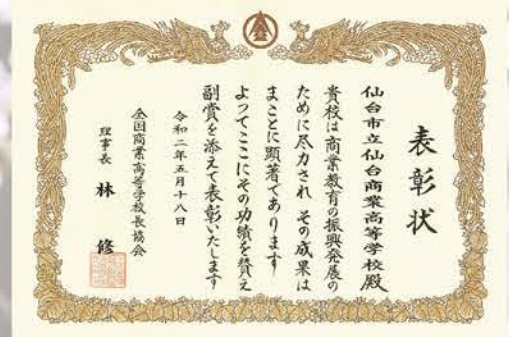 表彰状
仙台市立仙台商業高等学校殿
貴校は商業教育の振興発展の
ために尽力され その成果は
まことに顕著であります
よってここにその功績を賛え
副賞を添えて表彰いたします
令和二年五月十八日
全国商業高等学校長協会
理事長 林 修